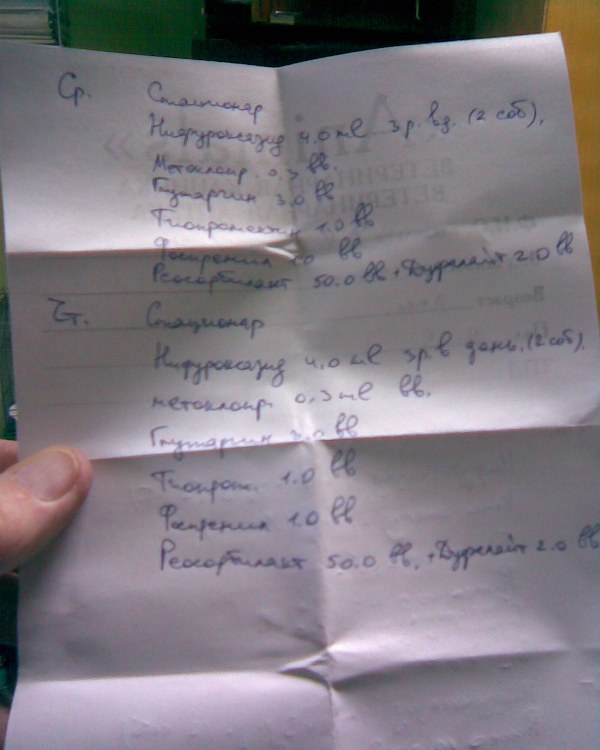 Ср. Стационар
Нифуроксазид 4.0 ml 3 р. вд. (2 соб),
Метоклопр. 0.3 вв.
Глутаргин 3.0 вв
1.0 вв
Фоспренил вв
Реосорбилакт 50.0 вв + Дуфалайт 2.0 вв
Чт. Стационар
Нифуроксазид 4.0 ml 3 р. в день. (2 соб),
метоклопр. 0.3 ml вв.
Глутаргин 3.0 вв
1.0 вв
Фоспренил 1.0 вв
Реосорбилакт 50.0 вв, + Дуфалайт 2.0 вв